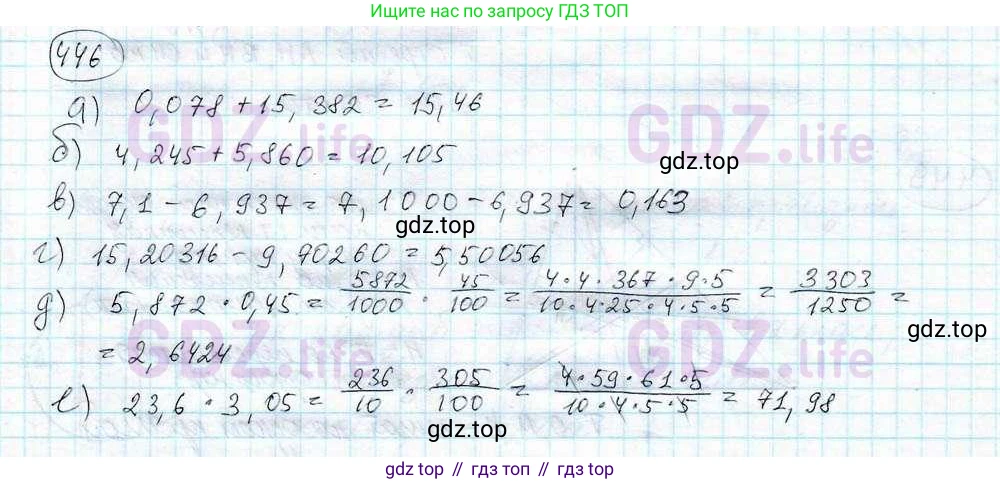 Ищите ответ по запросу ГДЗ ТОП
446
а) 0,078 + 15,382 = 15,46
б) 4,245 + 5,860 = 10,105
в) 7,1 - 6,937 = 7,1000 - 6,937 = 0,163
г) 15,20316 - 9,70260 = 5,50056
д) 5,872 · 0,45 = 5872/1000 · 45/100 = 4·4·367·9·5/10·4·25·4·5·5 = 3303/1250 =
= 2,6424
е) 23,6 · 3,05 = 236/10 · 305/100 = 4·59·61·5/10·4·5·5 = 71,98
GDZ.life
GDZ.life
GDZ.life
GDZ.life
gdz.top
gdz.top
gdz.top
gdz.top
gdz top // гдз топ // гдз.top